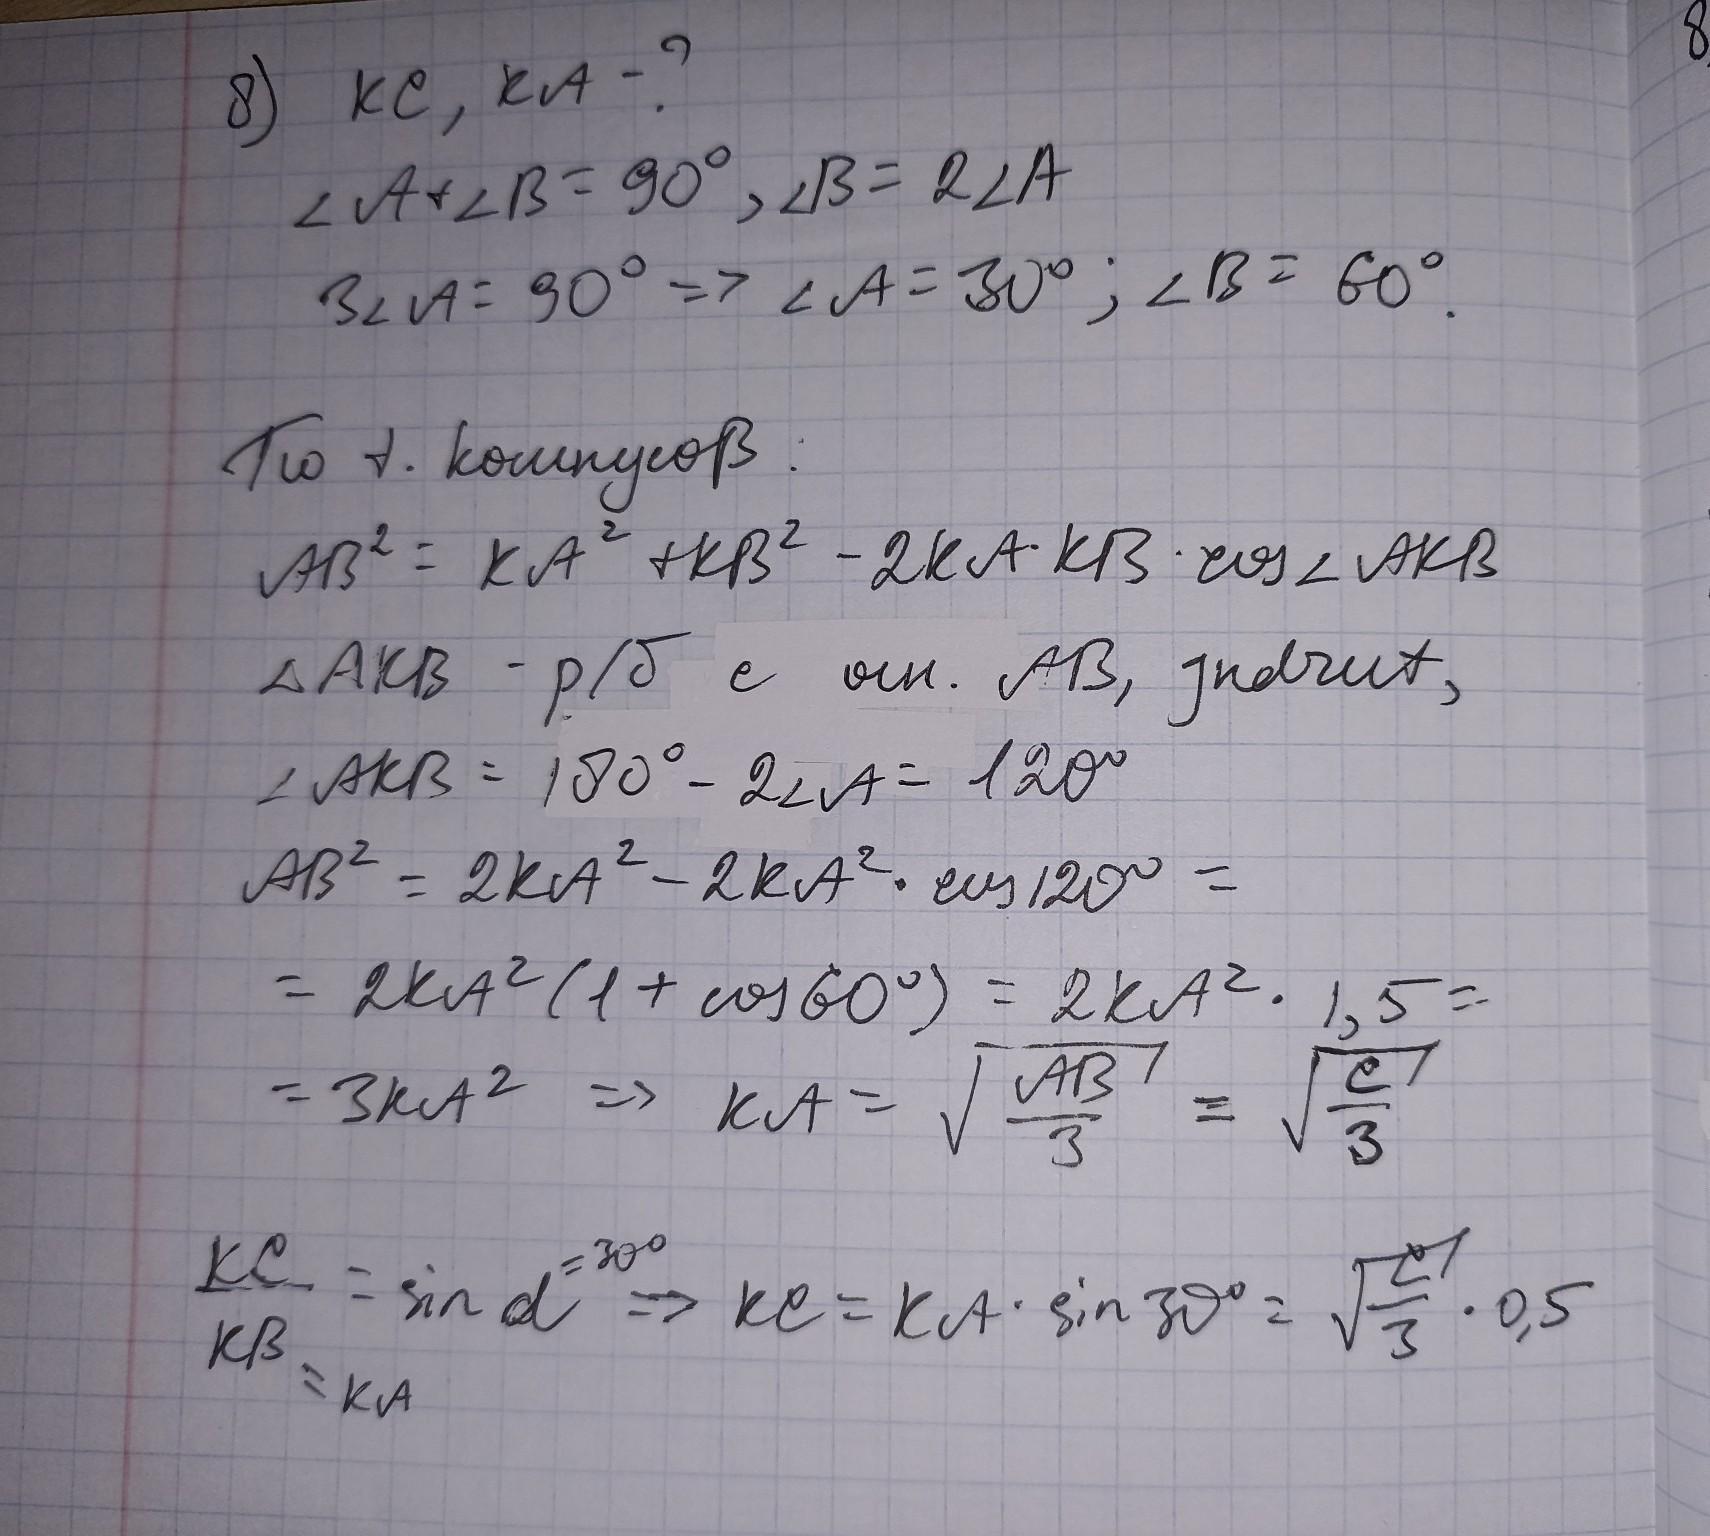 8) KC, KA - ?
∠A+∠B = 90°, ∠B = 2∠A
3∠A = 90° => ∠A = 30°; ∠B = 60°.
По т. косинусов:
AB² = KA² + KB² - 2KA·KB·cos∠AKB
△AKB - р/б с осн. AB, значит,
∠AKB = 180° - 2∠A = 120°
AB² = 2KA² - 2KA²·cos120° =
= 2KA²(1 + cos60°) = 2KA²·1,5 =
= 3KA² => KA = √(AB/3) = √(c/3)
KC/KB = sin α =30° => KC = KA·sin30° = √(c/3)·0,5
= KA
8